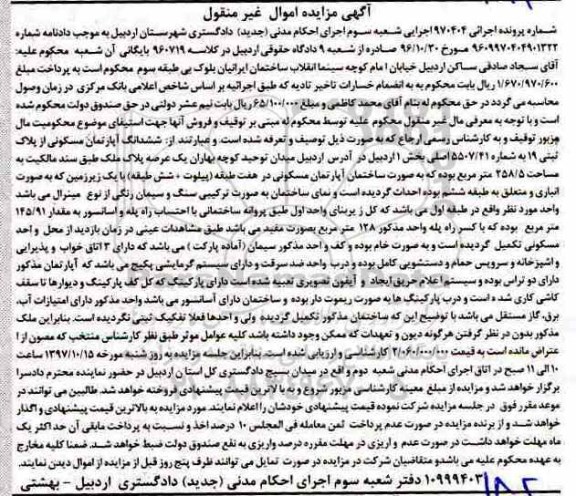 آگهی مزایده اموال غیر منقول
شماره پرونده اجرائی ۹۷۰۴۰۴اجرایی شعبه سوم اجرای احکام مدنی (جدید) دادگستری شهرستان اردبیل به موجب دادنامه شماره
۹۶۰۹۹۷۰۴۰۴۹۰۱۳۲۲ مورخ ۹۶/۱۰/۳۰ صادره از شعبه ۹ دادگاه حقوقی اردبیل در کلاسه ۹۶۰۷۱۹ بایگانی آن شعبه محکوم علیه:
آقای سجاد صادقی ساکن اردبیل خیابان امام کوچه سینما انقلاب ساختمان ایرانیان بلوک بی طبقه سوم محکوم است به پرداخت مبلغ
۱/۶۷۰/۹۷۰/۶۰۰ ریال بابت محکوم به به انضمام خسارات تاخیر تادیه که طبق اجرائیه بر اساس شاخص اعلامی بانک مرکزی در زمان وصول
محاسبه می گردد در حق محکوم له بنام آقای محمد کاظمی و مبلغ ۶۵/۱۰۰/۰۰۰ ریال بابت نیم عشر دولتی در حق صندوق دولت محکوم شده
است و با توجه به معرفی مال غیر منقول محکوم علیه توسط محکوم له مبنی بر توقیف و فروش آنها جهت استیفای موضوع محکومیت مال
مزبور توقیف و به کارشناس رسمی ارجاع که به صورت ذیل توصیف و تعرفه شده است. و عبارتند از: ششدانگ آپارتمان مسکونی از پلاک
ثبتی ۱۹ به شماره ۵۵۰۷/۴۱ اصلی بخش ۱ اردبیل در آدرس اردبیل میدان توحید کوچه بهاران یک عرصه پلاک ملک طبق سند مالکیت به
مساحت ۲۵۸/۵ متر مربع بوده که به صورت ساختمان آپارتمان مسکونی در هفت طبقه (پیلوت + شش طبقه) با یک زیرزمین که به صورت
انباری و متعلق به طبقه ششم بوده احداث گردیده است و نمای ساختمان به صورت ترکیبی سنگ و سیمان رنگی از نوع مینرال می باشد
واحد مورد نظر واقع در طبقه اول می باشد که کل زیربنای واحد اول طبق پروانه ساختمانی با احتساب راه پله و اسانسور به مقدار ۱۴۵/۹۱
متر مربع بوده که با کسر راه پله واحد مذکور ۱۲۸ متر مربع بصورت مفید می باشد طبق مشاهدات عینی در زمان بازدید از محل واحد
مسکونی تکمیل گردیده است و به صورت خام بوده و کف واحد مذکور سیمان (آماده پارکت) می باشد که دارای ۳ اتاق خواب و پذیرایی
واشپزخانه و سرویس حمام و دستشویی کامل بوده و درب واحد ضد سرقت و دارای سیستم گرمایشی پکیج می باشد که آپارتمان مذکور
دارای دو تراس بوده و سیستم اعلام حریق ایجاد و آیفون تصویری تعبیه شده است دارای پارکینگ که کل کف پارکینگ و دیوارها تا سقف
کاشی کاری شده است و درب پارکینگ ها به صورت ریموت دار بوده و ساختمان دارای آسانسور می باشد واحد مذکور دارای امتیازات آب،
برق، گاز مستقل می باشد با توضیح این که ساختمان مذکور تکمیل گردیده ولی و احدها فعلا تفکیک ثبتی نگردیده است. بنابراین ملک
مذکور بدون در نظر گرفتن هرگونه دیون و تعهدات که ممکن وجود داشته باشد کلیه عوامل موثر طبق نظر کارشناس منتخب که مصون از ا
عتراض مانده است به قیمت ۲/۰۶۰/۰۰۰/۰۰۰ کارشناسی و ارزیابی شده است. بنابراین جلسه مزایده به روز شنبه مورخه ۱۳۹۷/۱۰/۱۵ ساعت
۱۰ الی ۱۱ صبح در اتاق اجرای احکام مدنی شعبه دوم واقع در میدان بسیج دادگستری کل استان اردبیل در حضور نماینده محترم دادسرا
برگزار خواهد شد و مزایده از مبلغ معینه کارشناسی مزبور شروع و به بالاترین قیمت پیشنهادی فروخته خواهد شد. طالبین می توانند در
موعد مقرر فوق در جلسه مزایده شرکت نموده قیمت پیشنهادی خودشان را اعلام نمایند. مورد مزایده به بالاترین قیمت پیشنهادی واگذار
خواهد شد و از برنده مزایده در صورت عدم پرداخت ثمن معامله فی المجلس ۱۰ درصد اخذ و نسبت به پرداخت مابقی آن حد اکثر یک
ماه مهلت خواهد داشت در صورت عدم واریزی در مهلت مقرره درصد واریزی به نفع صندوق دولت ضبط خواهد شد. ضمنا کلیه مخارج
به عهده محکوم علیه می باشدو متقاضیان شرکت در مزایده در صورت تمایل می توانند ظرف پنج روز قبل از مزایده از اموال دیدن نمایند.
۱۰۹۹۹۴۰۳ دفتر شعبه سوم اجرای احکام مدنی (جدید) دادگستری اردبیل - بهشتی